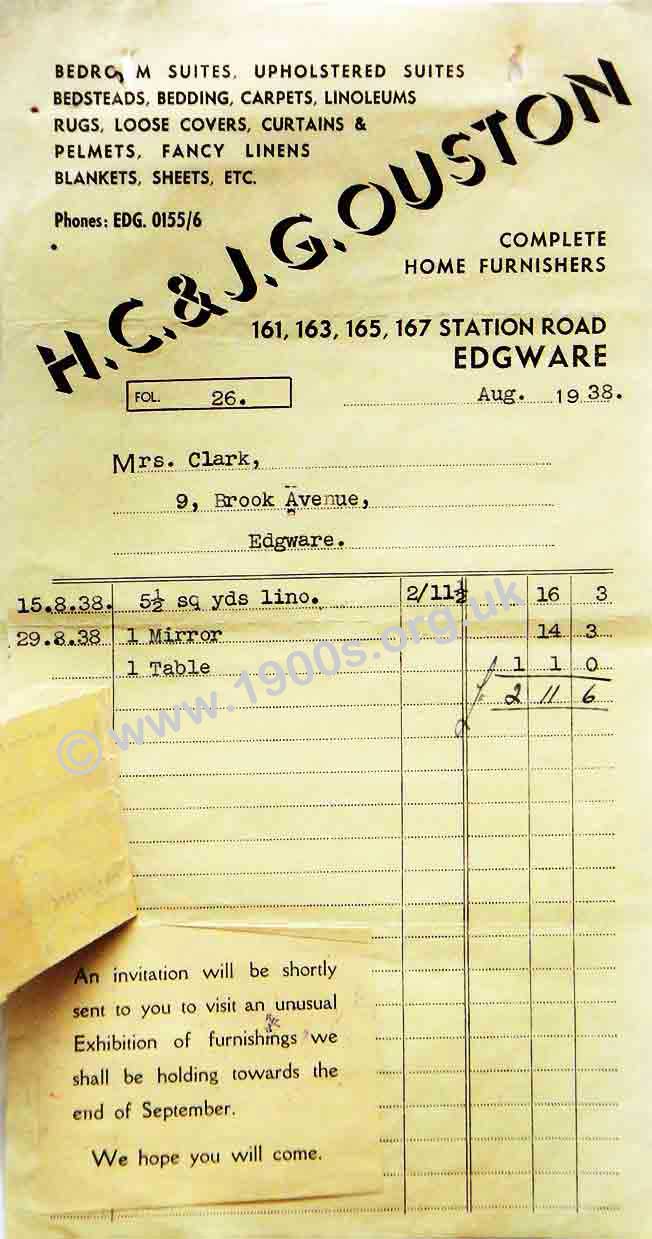 BEDRO M SUITES, UPHOLSTERED SUITES
BEDSTEADS, BEDDING, CARPETS, LINOLEUMS
RUGS, LOOSE COVERS, CURTAINS &
PELMETS, FANCY LINENS
BLANKETS, SHEETS, ETC.
Phones: EDG. 0155/6
H.C.&J.G.OUSTON
COMPLETE
HOME FURNISHERS
161, 163, 165, 167 STATION ROAD
EDGWARE
FOL. 26.
Aug. 19 38.
Mrs. Clark,
9, Brook Avenue,
Edgware.
15.8.38. 5½ sq yds lino. 2/11½ 16 3
29.8.38 1 Mirror 14 3
1 Table 1 1 0
2 11 6
© www.1900s.org.uk
An invitation will be shortly
sent to you to visit an unusual
Exhibition of furnishings we
shall be holding towards the
end of September.
We hope you will come.